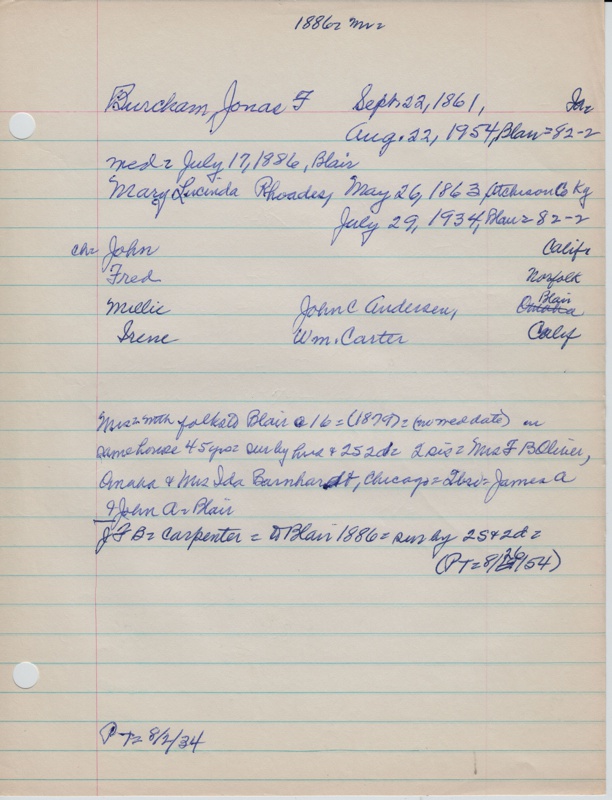 1886= Mr=
Burcham, Jonas F Sept. 22, 1861, In=
Aug. 22, 1954, Blair = 82-2
med = July 17, 1886, Blair
Mary Lucinda Rhoades, May 26, 1863 Atchison Co Ky
July 29, 1934, Blair = 82-2
ch= John Calif=
Fred Norfolk
Millie John C Andersen, Blair Omaha
Irene Wm. Carter Calif
Mrs = with folks to Blair @ 16 = (1879) = (no med date) in
same house 45 yrs = sur by hus & 2s 2d = 2 sis = Mrs F B Oliver,
Omaha & Mrs Ida Barnhardt, Chicago = 2 bro = James A
& John A = Blair
J F B = Carpenter = to Blair 1886 = sur by 2s & 2d =
(PT = 8/26/54)
PT = 8/2/34